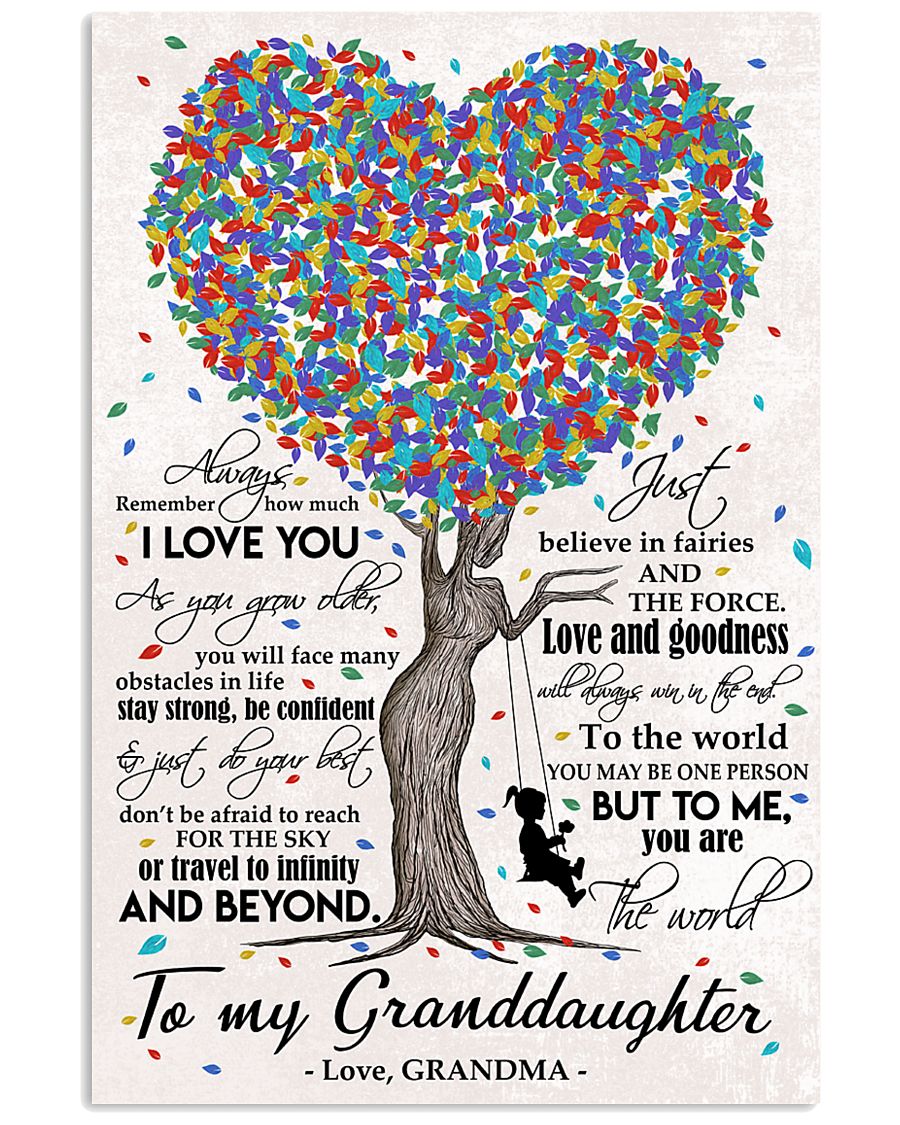 Always
Remember how much
I LOVE YOU
As you grow older,
you will face many
obstacles in life
stay strong, be confident
& just do your best
don't be afraid to reach
FOR THE SKY
or travel to infinity
AND BEYOND.
Just
believe in fairies
AND
THE FORCE.
Love and goodness
will always win in the end.
To the world
YOU MAY BE ONE PERSON
BUT TO ME,
you are
The world
To my Granddaughter
- Love, GRANDMA -